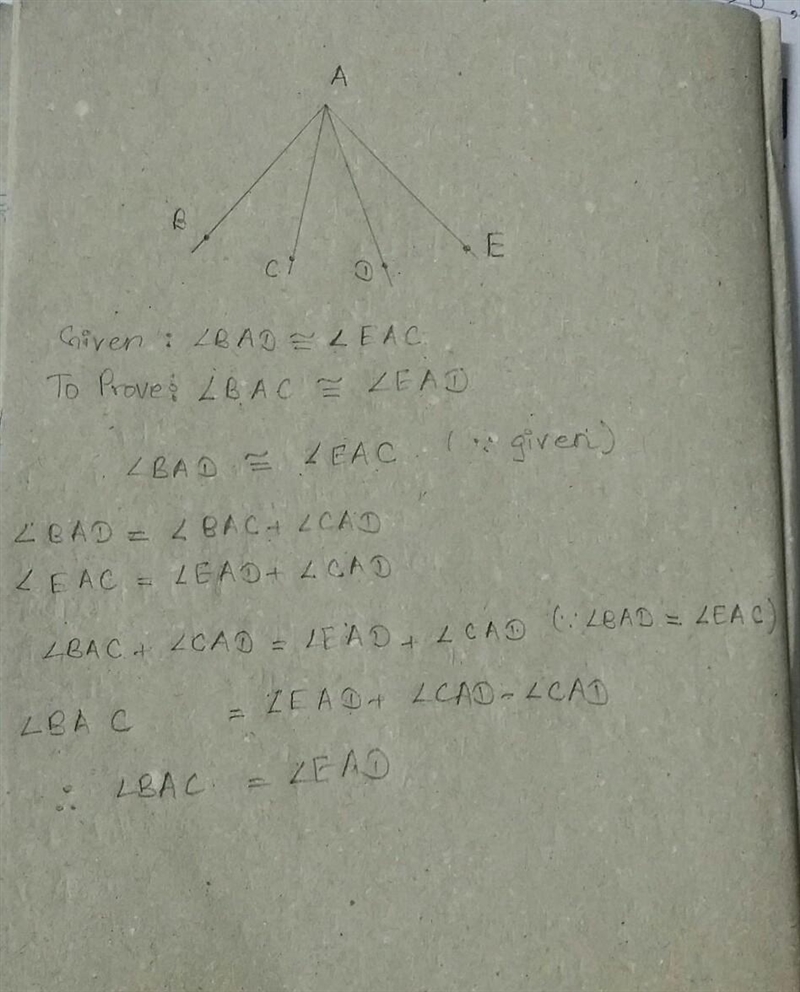 A
B
C
D
E
Given : ∠BAD ≅ ∠EAC
To Prove: ∠BAC ≅ ∠EAD
∠BAD ≅ ∠EAC (∵ given)
∠BAD = ∠BAC + ∠CAD
∠EAC = ∠EAD + ∠CAD
∠BAC + ∠CAD = ∠EAD + ∠CAD (∵ ∠BAD = ∠EAC)
∠BAC = ∠EAD + ∠CAD - ∠CAD
∴ ∠BAC = ∠EAD